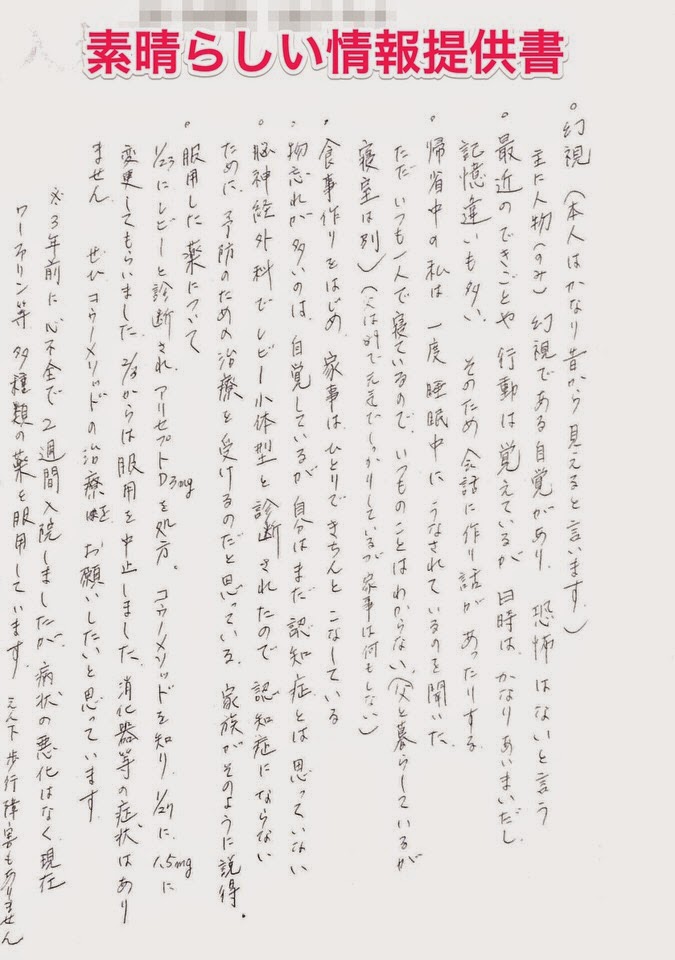 素晴らしい情報提供書
。幻視（本人はかなり昔から見えると言います。）
主に人物（のみ）幻視である自覚があり、恐怖はないと言う
。最近のできごとや行動は覚えているが、日時はかなりあいまいだし、
記憶違いも多い。そのため会話に作り話があったりする
。帰省中の私は一度睡眠中にうなされているのを聞いた。
ただいつも一人で寝ているので、いつものことはわからない（父と暮らしているが
寝室は別）（父は89で元気でしっかりしているが家事は何もしない）
。食事作りをはじめ、家事はひとりできちんとこなしている
。物忘れが多いのは、自覚しているが自分はまだ認知症とは思っていない
。脳神経外科でレビー小体型と診断されたので認知症にならない
ために、予防のための治療を受けるのだと思っている。家族がそのように説得。
。服用した薬について
1/23にレビーと診断され、アリセプトD3mgを処方。コウノメソッドを知り、1/27に1.5mgに
変更してもらいました。2/3からは服用を中止しました。消化器等の症状はあり
ません。ぜひコウノメソッドの治療をお願いしたいと思っています。
※3年前に心不全で2週間入院しましたが、病状の悪化はなく、現在
ワーファリン等多種類の薬を服用しています。えん下歩行障害もありません